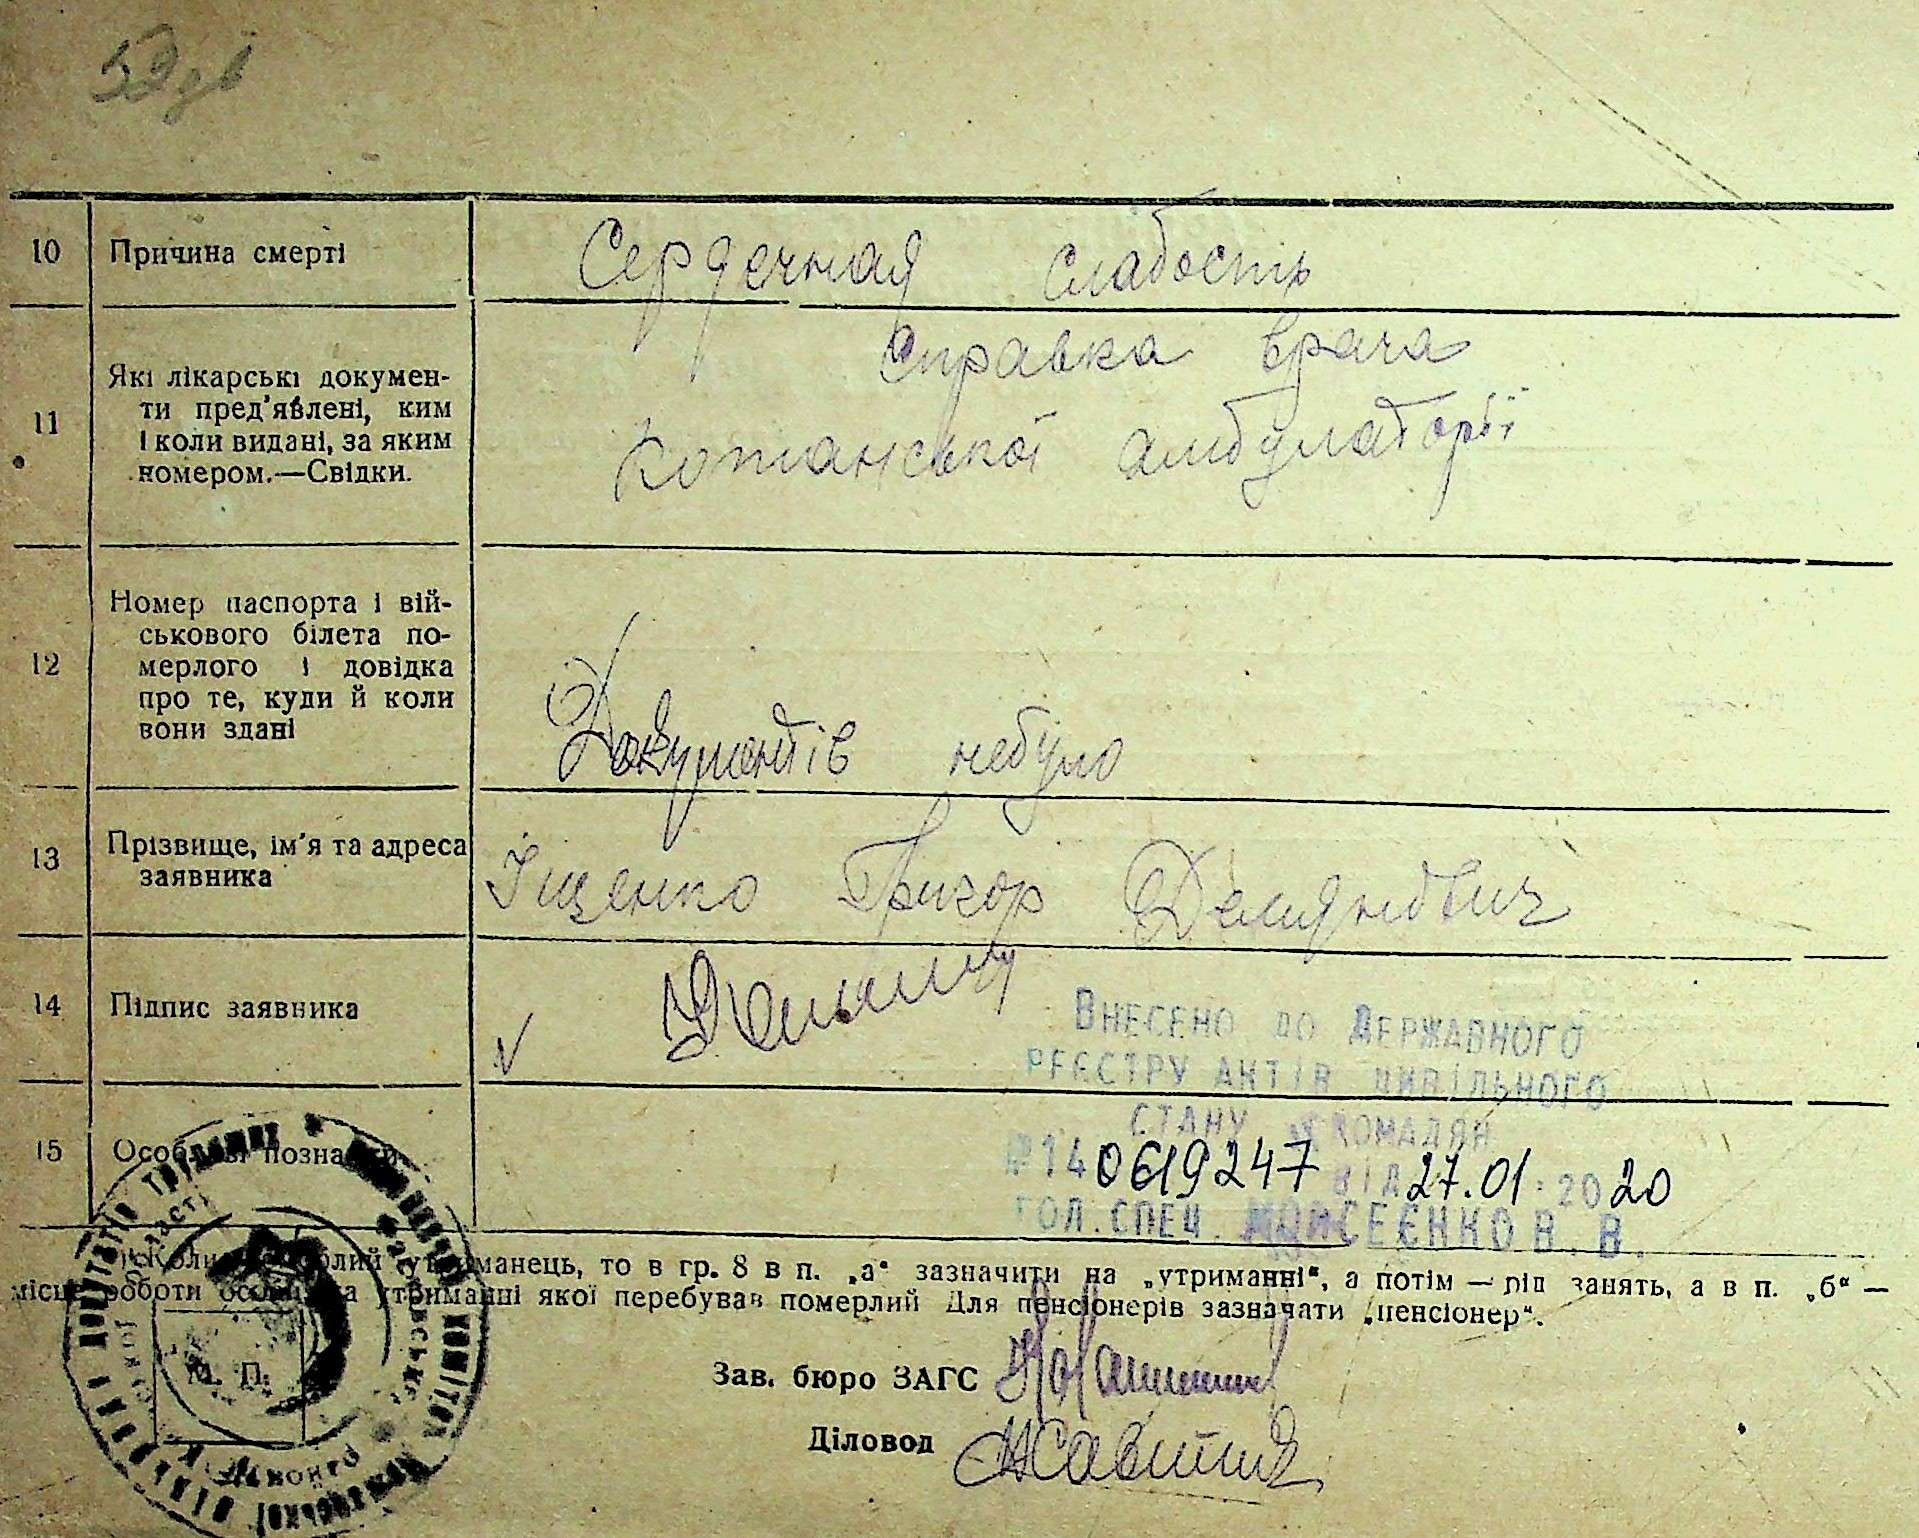 10 Причина смерті Сердечная слабость
11 Які лікарські докумен-
ти пред'явлені, ким
і коли видані, за яким
номером.—Свідки.
справка врача
амбулаторії
12 Номер паспорта і вій-
ськового білета по-
мерлого і довідка
про те, куди й коли
вони здані
Документів небуло
13 Прізвище, ім'я та адреса
заявника
Іщенко Григор Демянович
14 Підпис заявника
Внесено до Державного
реєстру актів цивільного
стану громадян
№14 0619247 від 27.01.2020
гол. спец. Моисеєнко В. В.
15 Особливі познатки
Коли утриманець, то в гр. 8 в п. „а“ зазначити на „утриманні“, а потім — рід занять, а в п. „б“ —
місце роботи утриманні якої перебував померлий Для пенсіонерів зазначати „пенсіонер“.
М. П.
Зав. бюро ЗАГС
Діловод